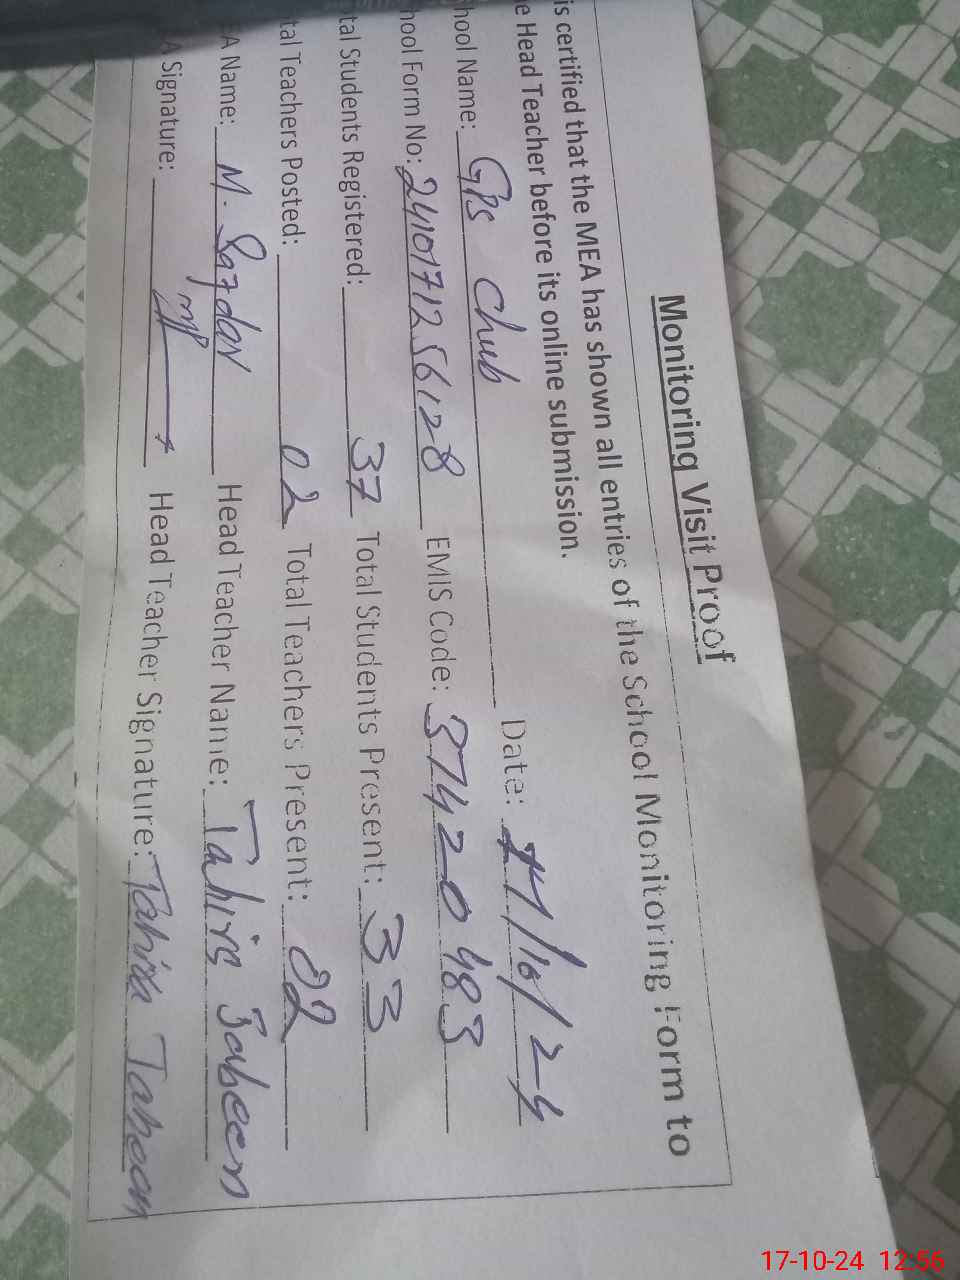 Monitoring Visit Proof
is certified that the MEA has shown all entries of the School Monitoring Form to
e Head Teacher before its online submission.
hool Name: GPS Chub Date: 17/10/24
hool Form No: 2410171256128 EMIS Code: 37420483
tal Students Registered: 37 Total Students Present: 33
tal Teachers Posted: 02 Total Teachers Present: 02
A Name: M. Head Teacher Name: Tahira Jabeen
A Signature: Head Teacher Signature: Tahira
17-10-24 12:56